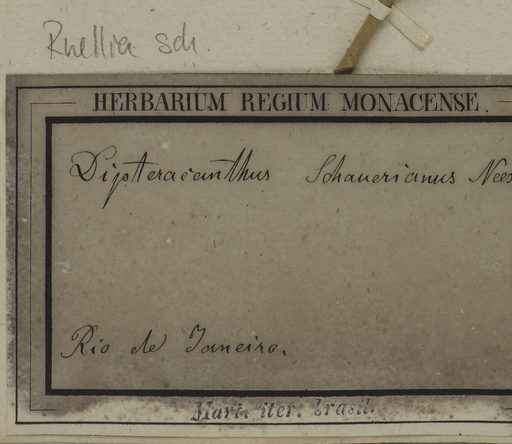 Ruellia sch.
HERBARIUM REGIUM MONACENSE.
Dipteracanthus Schauerianus Nees
Rio de Janeiro.
Mart. iter. brasil.